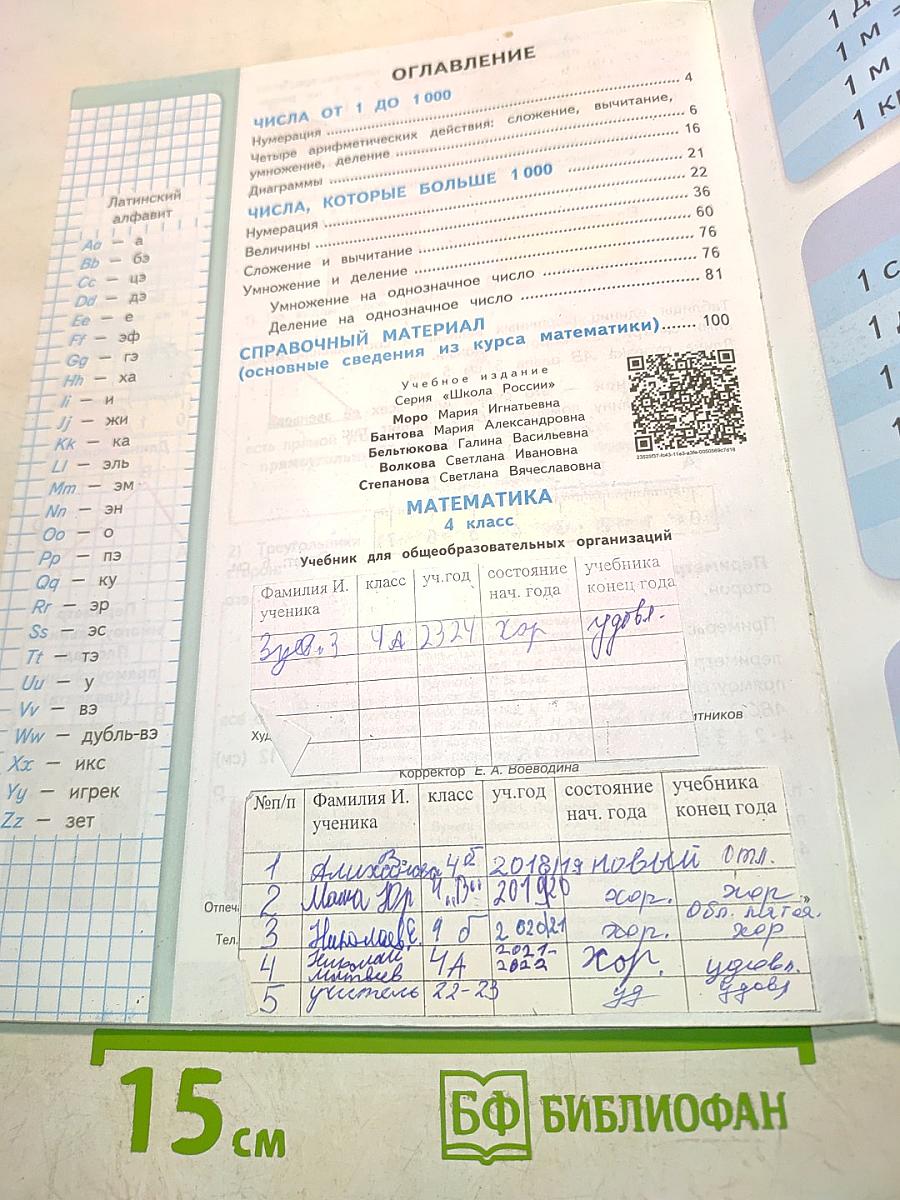 Латинский
алфавит
Aa — а
Bb — бэ
Cc — цэ
Dd — дэ
Ee — е
Ff — эф
Gg — гэ
Hh — ха
Ii — и
Jj — жи
Kk — ка
Ll — эль
Mm — эм
Nn — эн
Oo — о
Pp — пэ
Qq — ку
Rr — эр
Ss — эс
Tt — тэ
Uu — у
Vv — вэ
Ww — дубль-вэ
Xx — икс
Yy — игрек
Zz — зет
ОГЛАВЛЕНИЕ
ЧИСЛА ОТ 1 ДО 1 000
Нумерация 4
Четыре арифметических действия: сложение, вычитание,
умножение, деление 6
Диаграммы 16
ЧИСЛА, КОТОРЫЕ БОЛЬШЕ 1 000 21
Нумерация 22
Величины 36
Сложение и вычитание 60
Умножение и деление 76
Умножение на однозначное число 76
Деление на однозначное число 81
СПРАВОЧНЫЙ МАТЕРИАЛ
(основные сведения из курса математики) 100
Учебное издание
Серия «Школа России»
Моро Мария Игнатьевна
Бантова Мария Александровна
Бельтюкова Галина Васильевна
Волкова Светлана Ивановна
Степанова Светлана Вячеславовна
МАТЕМАТИКА
4 класс
Учебник для общеобразовательных организаций
Фамилия И. ученика класс уч.год состояние нач. года учебника конец года
4А 2324 хор удовл.
Худ
тников
Корректор Е. А. Воеводина
№п/п Фамилия И. ученика класс уч.год состояние нач. года учебника конец года
1 4б 2018/19 новый отл.
2 Маша Юр 4 „В" 2019/20 хор. хор
Отпеч
Обл. пятая.
3 Николаев Е. 4 б 2020/21 хор. хор
Тел.
4 Николай Матвеев 4А 2021-2022 хор. удовл.
5 учитель 22-23 уд удовл
1 м =
1 м
1 к
15 см
БФ БИБЛИОФАН